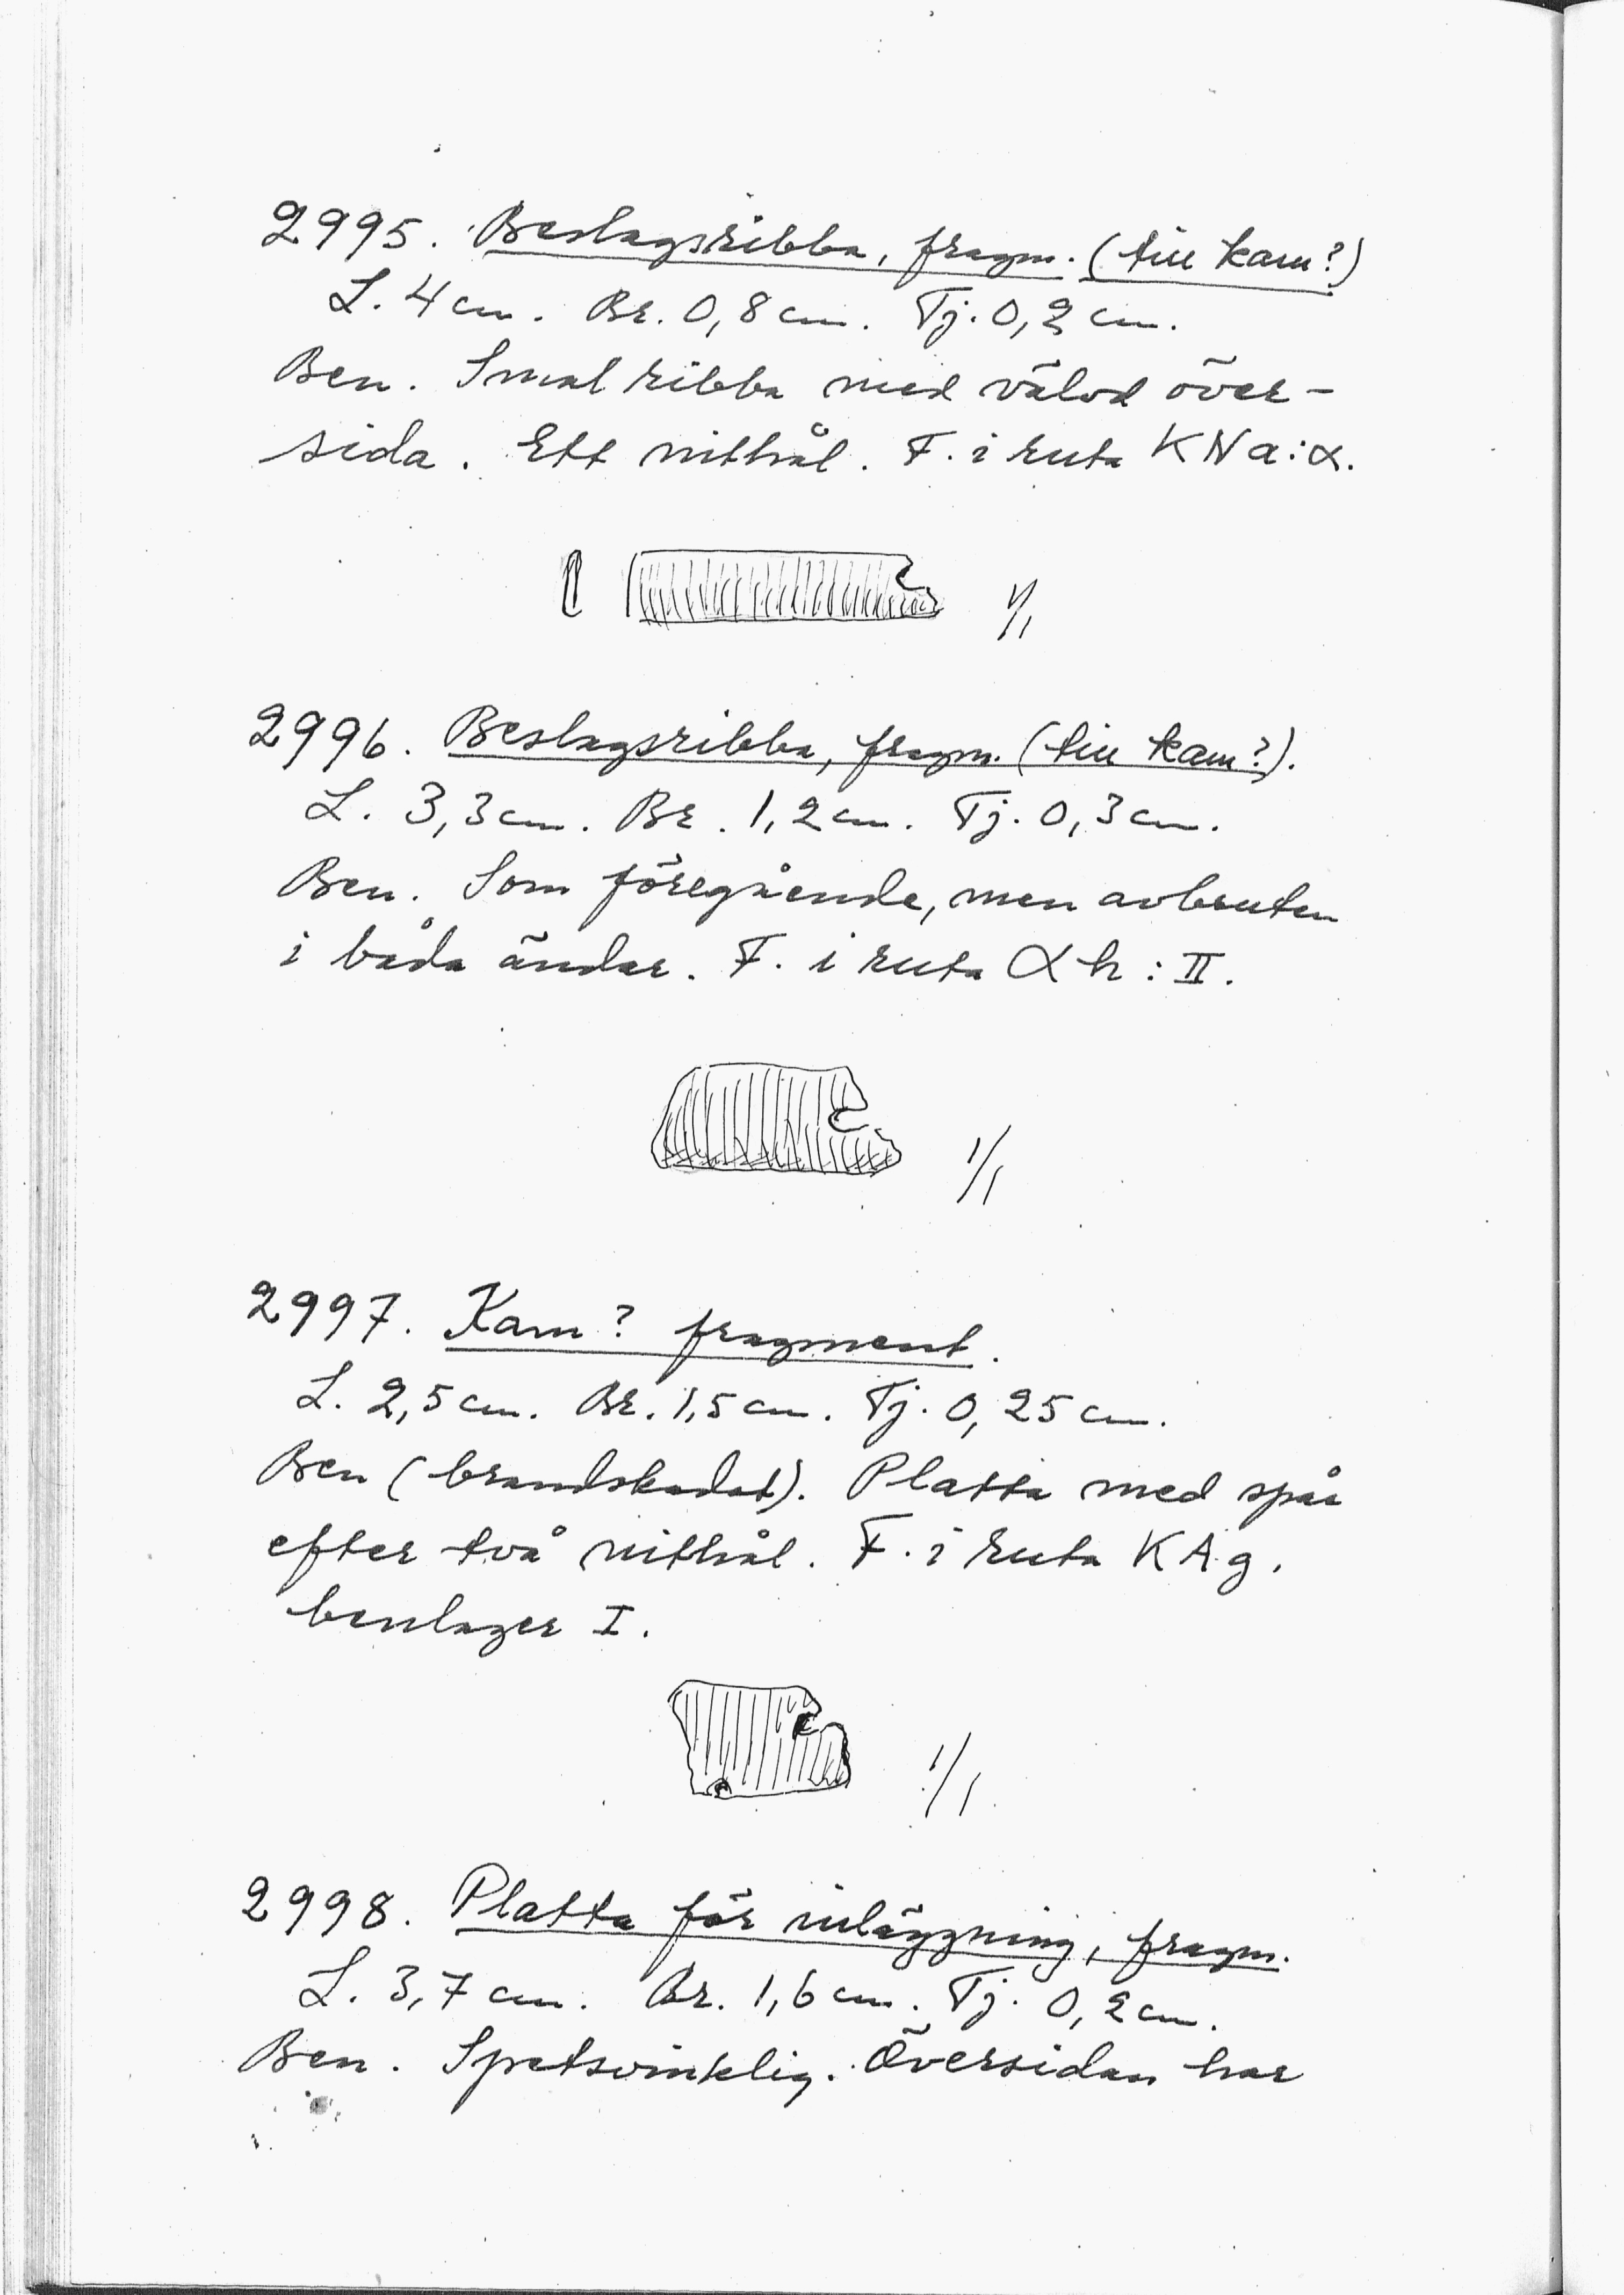 2995. Beslagsribba, fragm. (till kam?)
L. 4 cm. Br. 0,8 cm. Tj. 0,2 cm.
Ben. Smal ribba med välvd över-
sida. Ett nithål. F. i ruta KNa:α.
1/1
2996. Beslagsribba, fragm. (till kam?).
L. 3,3 cm. Br. 1,2 cm. Tj. 0,3 cm.
Ben. Som föregående, men avbruten
i båda ändar. F. i ruta αh:II.
1/1
2997. Kam? fragment.
L. 2,5 cm. Br. 1,5 cm. Tj. 0,25 cm.
Ben (brandskadat). Platta med spår
efter två nithål. F. i ruta KAg.
benlager I.
1/1
2998. Platta för inläggning, fragm.
L. 3,7 cm. Br. 1,6 cm. Tj. 0,2 cm.
Ben. Spetsvinklig. Översidan har